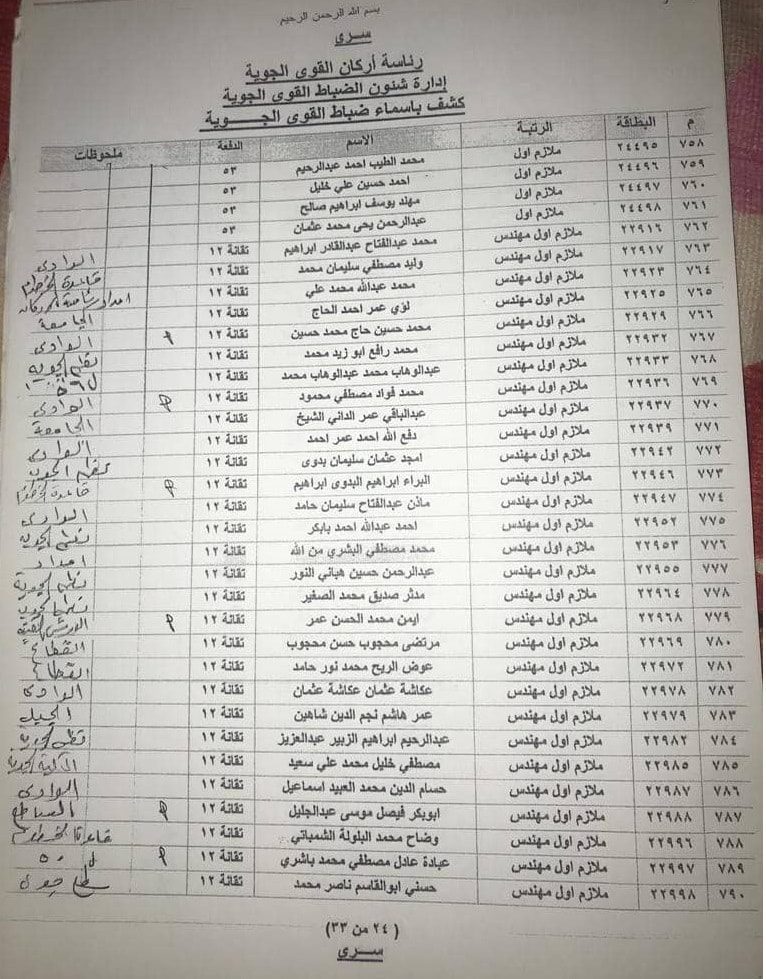 بسم الله الرحمن الرحيم
سرى
رئاسة أركان القوى الجوية
إدارة شئون الضباط القوى الجوية
كشف باسماء ضباط القوى الجـــــوية
م البطاقة الرتبة الاسم الدفعة ملحوظات
٧٥٨ ٢٤٤٩٥ ملازم اول محمد الطيب احمد عبدالرحيم ٥٣
٧٥٩ ٢٤٤٩٦ ملازم اول احمد حسين علي خليل ٥٣
٧٦٠ ٢٤٤٩٧ ملازم اول مهند يوسف ابراهيم صالح ٥٣
٧٦١ ٢٤٤٩٨ ملازم اول عبدالرحمن يحى محمد عثمان ٥٣
٧٦٢ ٢٢٩١٦ ملازم اول مهندس محمد عبدالفتاح عبدالقادر ابراهيم تقانة ١٢ الوادى
٧٦٣ ٢٢٩١٧ ملازم اول مهندس وليد مصطفي سليمان محمد تقانة ١٢ قاعدة
٧٦٤ ٢٢٩٢٣ ملازم اول مهندس محمد عبدالله محمد علي تقانة ١٢ امداد
٧٦٥ ٢٢٩٢٥ ملازم اول مهندس لؤي عمر احمد الحاج تقانة ١٢ الجامعة
٧٦٦ ٢٢٩٢٩ ملازم اول مهندس محمد حسين حاج محمد حسين تقانة ١٢ الوادى
٧٦٧ ٢٢٩٣٢ ملازم اول مهندس محمد رافع ابو زيد محمد تقانة ١٢
٧٦٨ ٢٢٩٣٣ ملازم اول مهندس عبدالوهاب محمد عبدالوهاب محمد تقانة ١٢
٧٦٩ ٢٢٩٣٦ ملازم اول مهندس محمد فواد مصطفي محمود تقانة ١٢ الوادى
٧٧٠ ٢٢٩٣٧ ملازم اول مهندس عبدالباقي عمر الداني الشيخ تقانة ١٢ الجامعة
٧٧١ ٢٢٩٣٩ ملازم اول مهندس دفع الله احمد عمر احمد تقانة ١٢ الوادى
٧٧٢ ٢٢٩٤٢ ملازم اول مهندس امجد عثمان سليمان بدوى تقانة ١٢
٧٧٣ ٢٢٩٤٦ ملازم اول مهندس البراء ابراهيم البدوى ابراهيم تقانة ١٢ قاعدة
٧٧٤ ٢٢٩٤٧ ملازم اول مهندس ماذن عبدالفتاح سليمان حامد تقانة ١٢ الوادى
٧٧٥ ٢٢٩٥٢ ملازم اول مهندس احمد عبدالله احمد بابكر تقانة ١٢
٧٧٦ ٢٢٩٥٣ ملازم اول مهندس محمد مصطفي البشري من الله تقانة ١٢ امداد
٧٧٧ ٢٢٩٥٥ ملازم اول مهندس عبدالرحمن حسين هباني النور تقانة ١٢
٧٧٨ ٢٢٩٦٤ ملازم اول مهندس مدثر صديق محمد الصغير تقانة ١٢
٧٧٩ ٢٢٩٦٨ ملازم اول مهندس ايمن محمد الحسن عمر تقانة ١٢
٧٨٠ ٢٢٩٦٩ ملازم اول مهندس مرتضى محجوب حسن محجوب تقانة ١٢ القطاع
٧٨١ ٢٢٩٧٢ ملازم اول مهندس عوض الريح محمد نور حامد تقانة ١٢ القطاع
٧٨٢ ٢٢٩٧٨ ملازم اول مهندس عكاشة عثمان عكاشة عثمان تقانة ١٢ الوادى
٧٨٣ ٢٢٩٧٩ ملازم اول مهندس عمر هاشم نجم الدين شاهين تقانة ١٢ الجبل
٧٨٤ ٢٢٩٨٢ ملازم اول مهندس عبدالرحيم ابراهيم الزبير عبدالعزيز تقانة ١٢
٧٨٥ ٢٢٩٨٥ ملازم اول مهندس مصطفي خليل محمد علي سعيد تقانة ١٢ الكلية
٧٨٦ ٢٢٩٨٧ ملازم اول مهندس حسام الدين محمد العبيد اسماعيل تقانة ١٢ الوادى
٧٨٧ ٢٢٩٨٨ ملازم اول مهندس ابوبكر فيصل موسى عبدالجليل تقانة ١٢
٧٨٨ ٢٢٩٩٦ ملازم اول مهندس وضاح محمد البلولة الشمباتي تقانة ١٢
٧٨٩ ٢٢٩٩٧ ملازم اول مهندس عبادة عادل مصطفي محمد باشري تقانة ١٢
٧٩٠ ٢٢٩٩٨ ملازم اول مهندس حسني ابوالقاسم ناصر محمد تقانة ١٢
( ٢٤ من ٣٣)
سرى